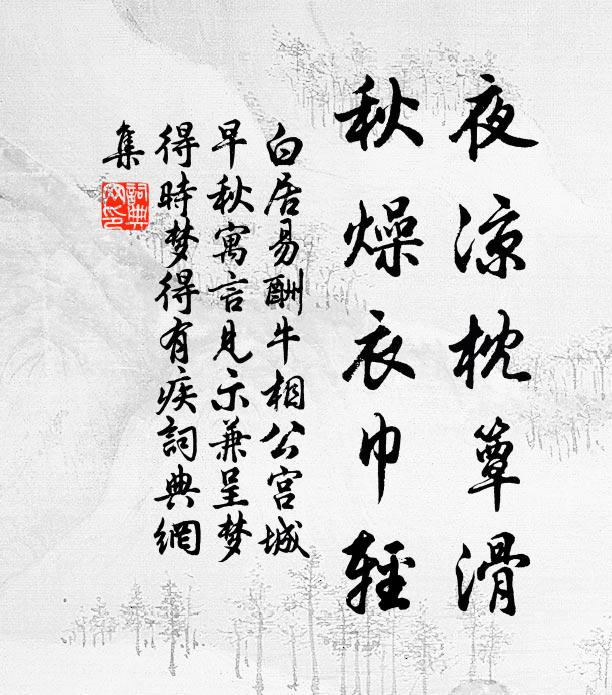 夜凉枕簟滑
秋燥衣巾輕
白居易酬牛相公宫城
早秋寓言見示兼呈梦
得時梦得有疾詞典網
集
詞典網印